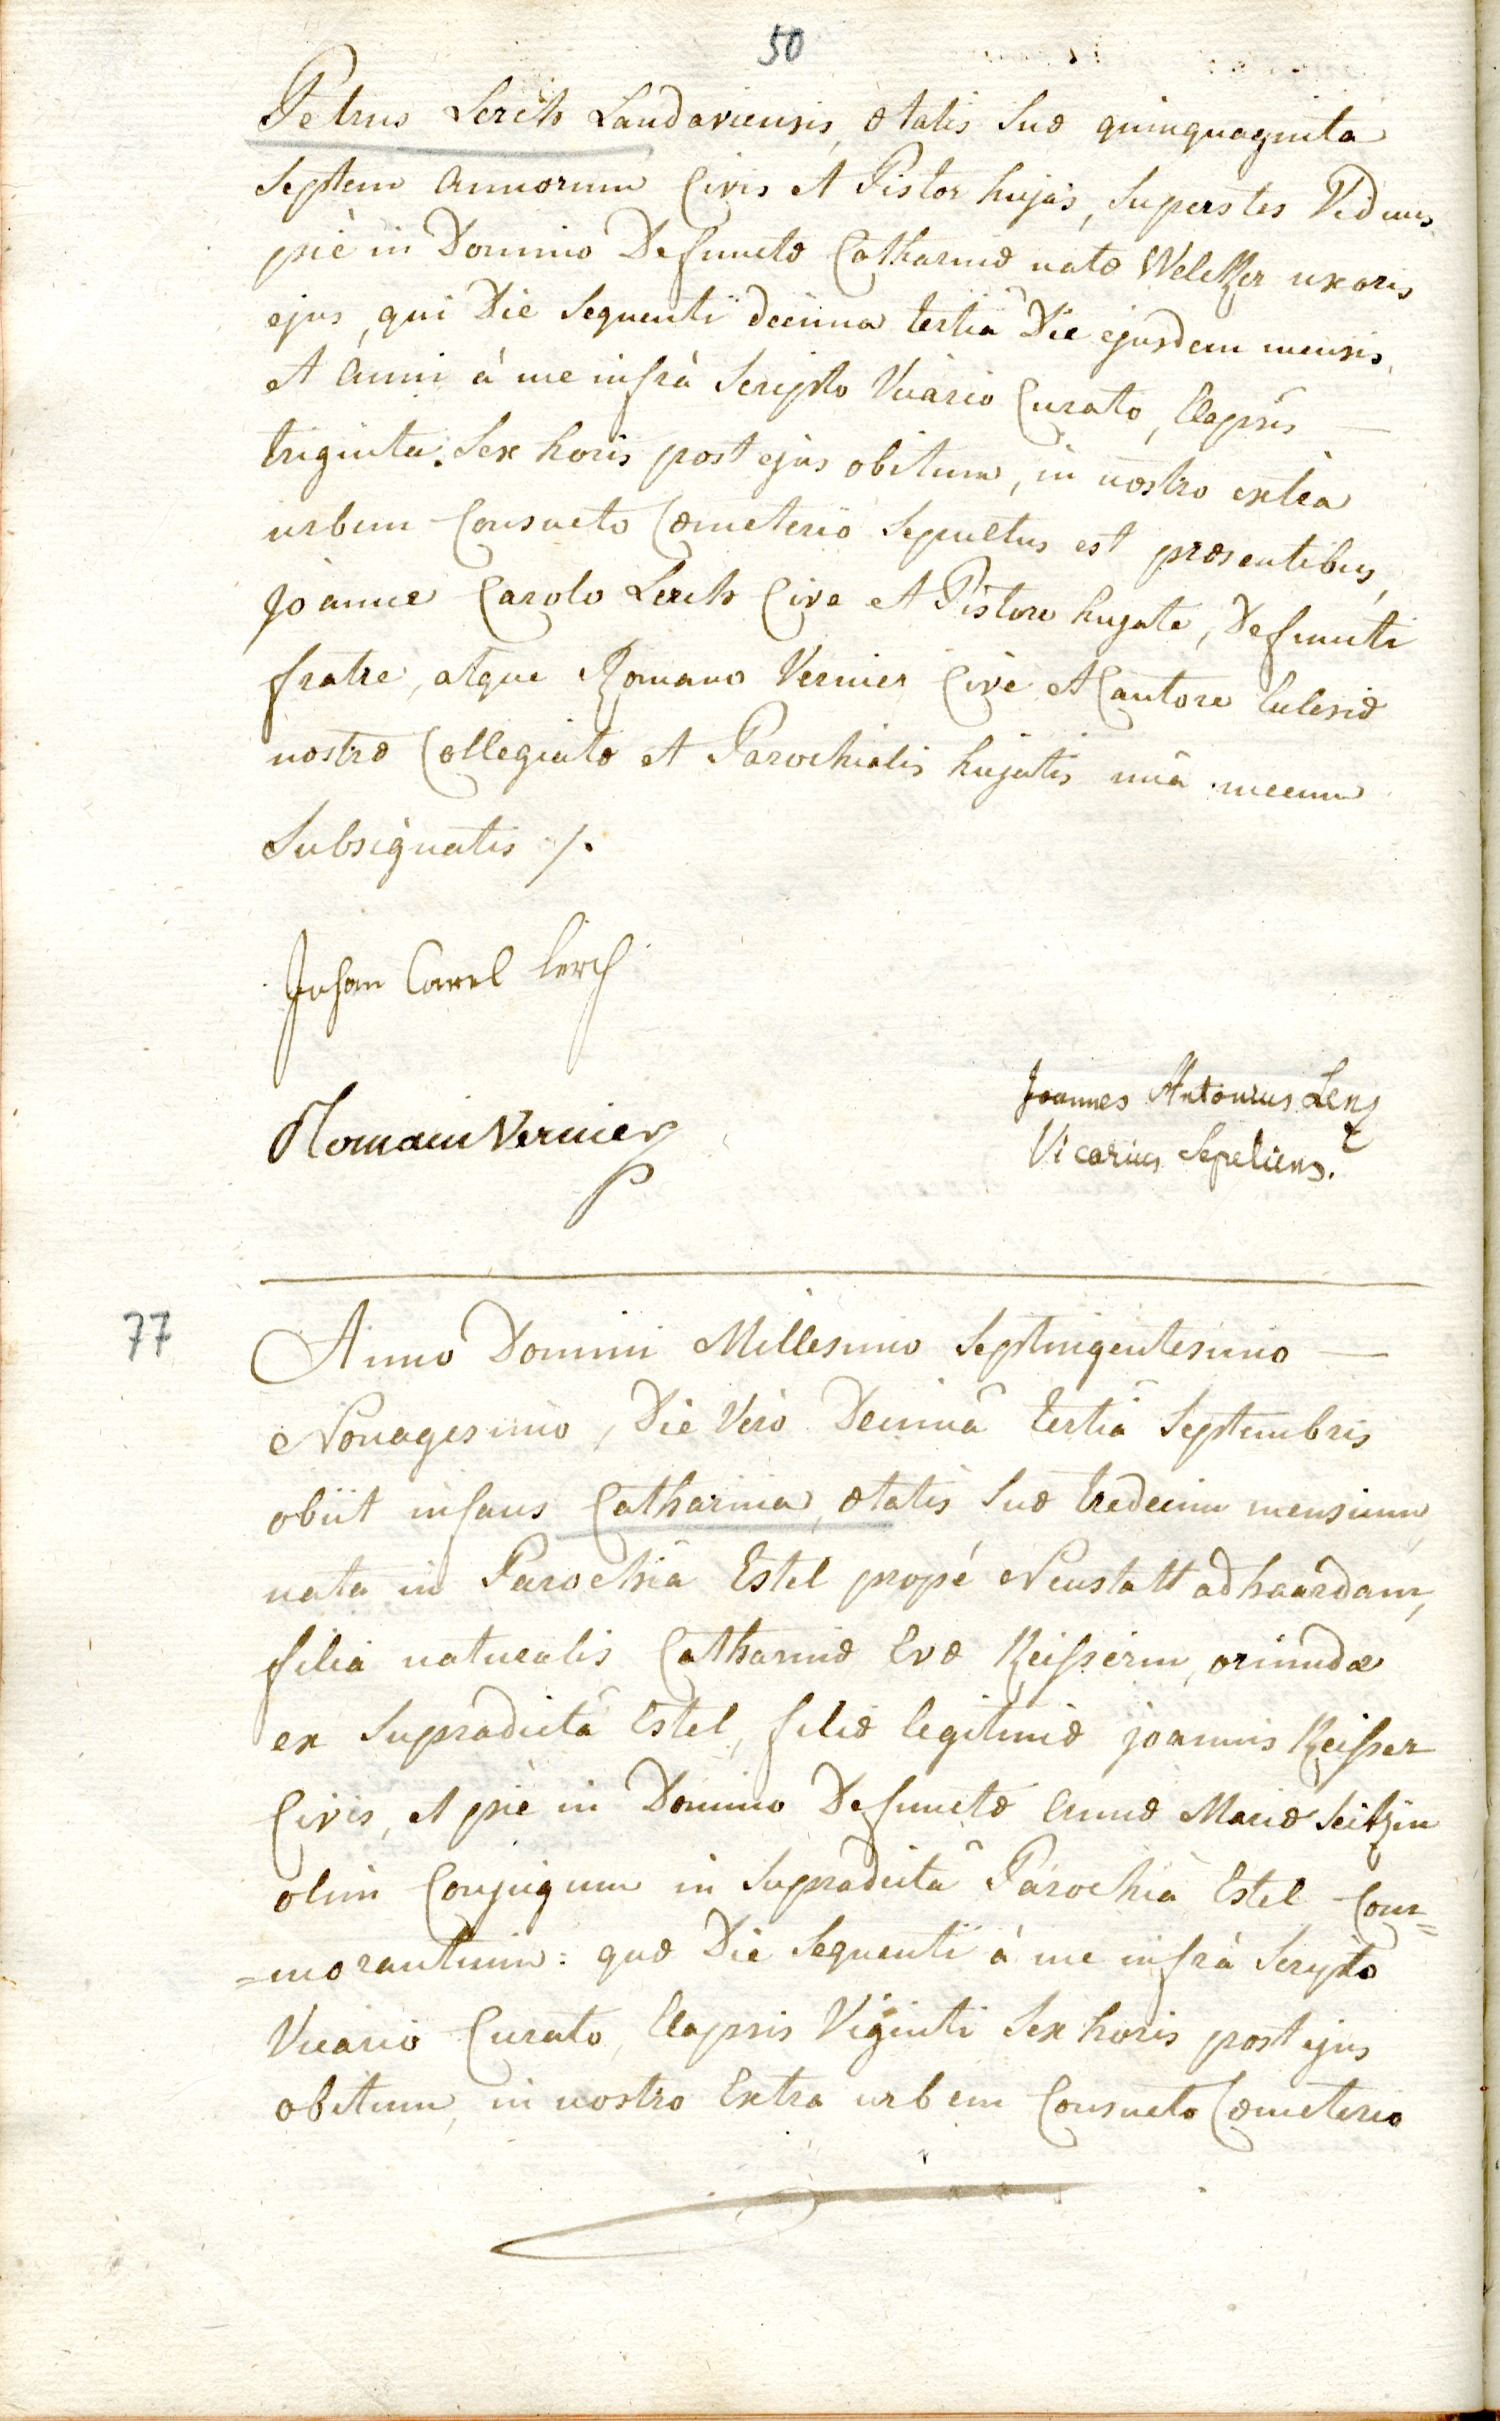 50
Petrus Lerch Landaviensis, ætatis suæ quinquaginta
septem annorum Civis et Pistor hujas, superstes Viduus
piè in Domino Defunctæ Catharinæ natæ Weltzer uxoris
ejus, qui Die sequenti decima tertiâ Die ejusdem mensis,
et anni à me infrà scripto Vicario Curato, Elapsis —
triginta sex horis post ejus obitum, in nostro extra
urbem Consueto Cœmeterio sepultus est præsentibus,
joanne Carolo Lerch Cive et Pistore hujate, Defuncti
fratre, atque Romano Vernier Cive et Cantore Eclesiæ
nostræ Collegiatæ et Parochialis hujatis unà mecum
subsignatis ./.
Johan Carel Lerch
Romain Vernier
Joannes Antonius Lenz
Vicarius Sepeliens.
77
Anno Domini Millesimo Septingentesimo —
Nonagesimo, Die Vero Decimâ tertiâ Septembris
obiit infans Catharina, ætatis suæ tredecim mensium,
nata in Parochiâ Estel propé Neustatt ad haardam,
filia naturalis Catharinæ Evæ Keisserin, oriundæ
ex supradictâ Estel, filiæ legitimæ joannis Keisser
Civis, et piè in Domino Defunctæ annæ Mariæ Seitzin
olim Conjugum in supradictâ Parochiâ Estel Com=
=morantium: quæ Die sequenti à me infrà scripto
Vicario Curato, Elapsis Viginti sex horis post ejus
obitum, in nostro Extra urbem Consueto Cœmeterio